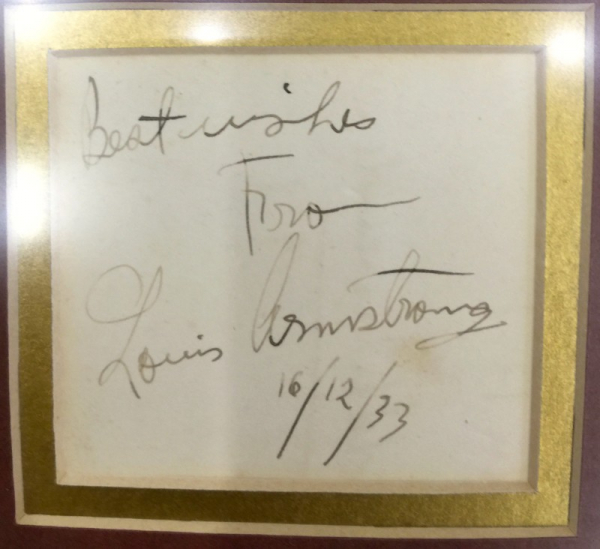 Best wishes
From
Louis Armstrong
16/12/33